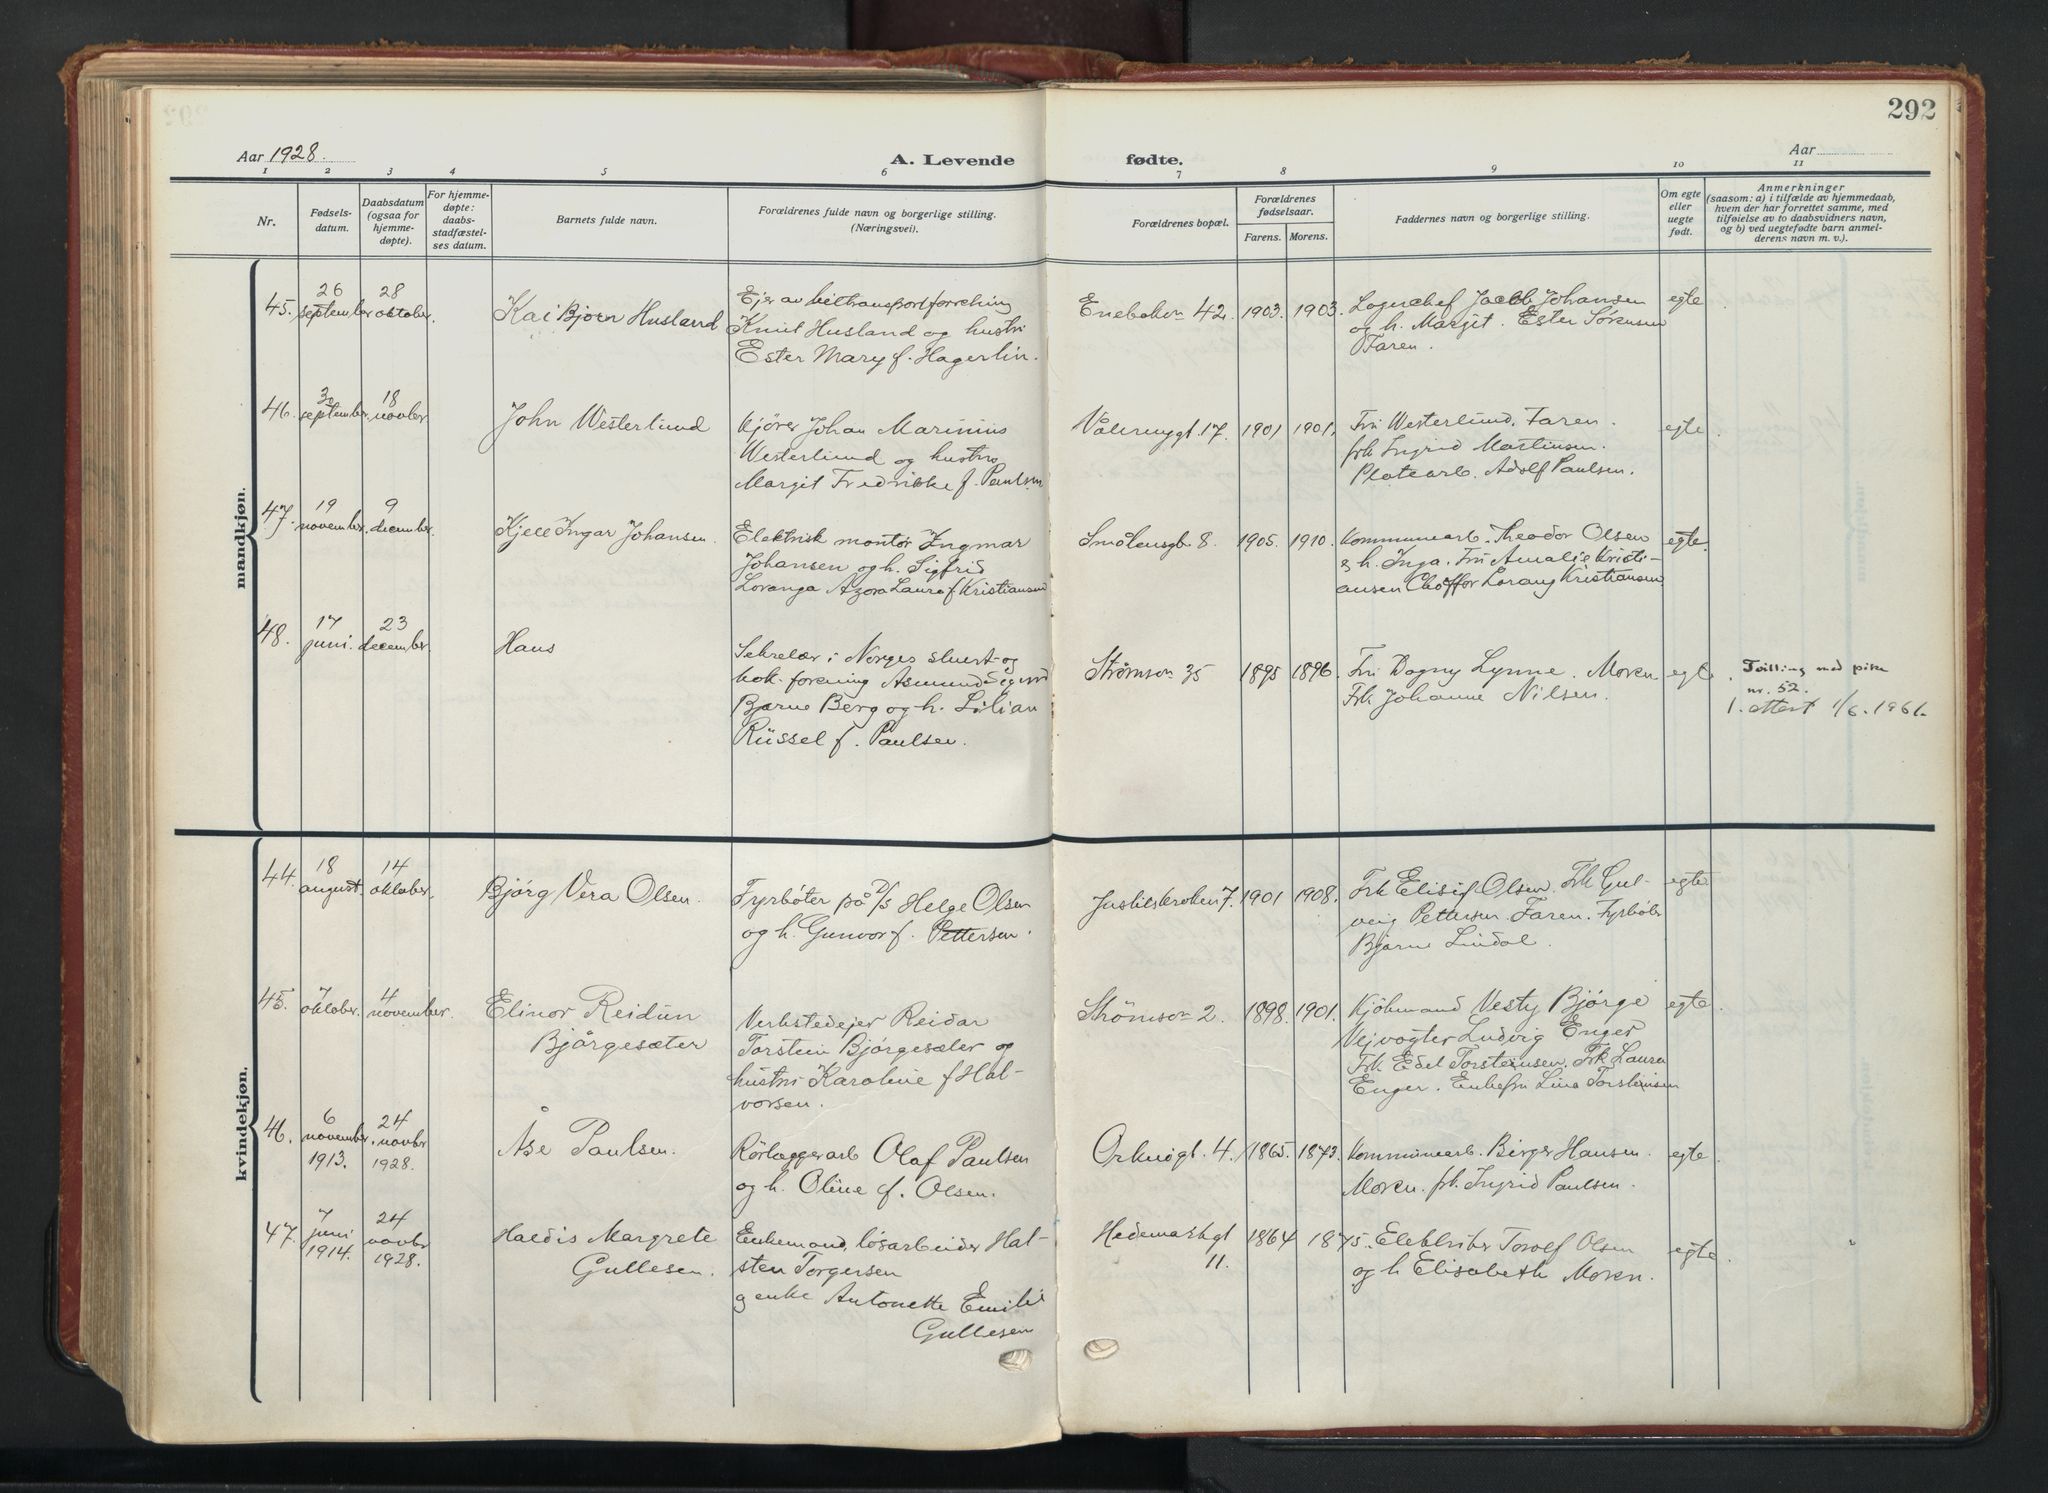 292
Aar 1928.
A. Levende fødte.
Aar
1 2 3 4 5 6 7 8 9 10 11
Nr.
Fødsels-
datum.
Daabsdatum
(ogsaa for
hjemme-
døpte).
For hjemme-
døpte:
daabs-
stadfæstel-
ses datum.
Barnets fulde navn.
Forældrenes fulde navn og borgerlige stilling.
(Næringsvei).
Forældrenes bopæl.
Forældrenes
fødselsaar.
Farens. Morens.
Faddernes navn og borgerlige stilling.
Om egte
eller
uegte
født.
Anmerkninger
(saasom: a) i tilfælde av hjemmedaab,
hvem der har forrettet samme, med
tilføielse av to daabsvidners navn,
og b) ved uegtefødte barn anmel-
derens navn m. v.).
mandkjøn.
45.
26
september
28
oktober.
Kai Bjørn Husland
Ejer av biltransportforretning
Knut Husland og hustru
Ester Mary f. Hagerlin.
Enebakvn 42.
1903. 1903.
Lagerchef Jacob Johansen
og h. Margit. Ester Sørensen
Faren.
egte
46.
30
september.
18
novbr.
John Westerlund
Kjører Johan Marinius
Westerlund og hustru
Margit Fredrikke f. Paulsen
Vålerenggt. 17.
1901 1901.
Fru Westerlund. Faren.
frk Ingrid Martinsen.
Platearb. Adolf Paulsen.
egte
47.
19
november.
9
december.
Kjell Ingar Johansen.
Elektrisk montør Ingmar
Johansen og h. Sigfrid
Loranga Azora Laura f Kristiansen
Smålensgt 8.
1905. 1910.
Kommunearb. Theodor Olsen
& h. Inga. Fru Amalie Kristi-
ansen Chåffør Lorang Kristiansen
egte.
48.
17
juni.
23
december.
Hans
Sekretær i Norges skuert- og
bok. forening Asmund Sigurd
Bjarne Berg og h. Lilian
Rüssel f. Paulsen.
Strømsvn 35
1895 1896.
Fru Dagny Lynne. Moren
Frk Johanne Nilsen.
egte.
Tvilling med pike
nr. 52.
1. attest 1/6. 1961.
kvindekjøn.
44.
18
august.
14
oktober.
Bjørg Vera Olsen.
Fyrbøter på D/S Helge Olsen
og h. Gunvor f. Pettersen.
Justitskroken 7.
1901 1908.
Frk Elisif Olsen. Frk Gul-
veig Pettersen. Faren. Fyrbøt.
Bjarne Lindal.
egte
45.
7
oktober.
4
november.
Elinor Reidun
Bjørgesæter
Verkstedejer Reidar
Torstein Bjørgesæter og
hustru Karoline f Hal-
vorsen.
Strömsvn 2.
1898. 1901.
Kjöbmand Vesty Bjørge
Vejvogter Ludvig Enger
Frk Edel Torsteinsen. Frk Laura
Enger. Enkefru Lina Torsteinsen
egte.
46.
6
november
1913.
24
novbr
1928.
Åse Paulsen.
Rörlæggerarb Olaf Paulsen
og h. Oline f. Olsen.
Orknøigt. 4.
1865. 1873.
Kommunearb. Birger Hansen.
Moren. frk. Ingrid Paulsen.
egte
47.
7
juni
1914.
24
novbr
1928.
Haldis Margrete
Gullesen.
Enkemand, løsarbeider Hal-
sten Torgersen
og enke Antonette Emilie
Gullesen
Hedemarksgt
11.
1864 1875.
Elektriker Torolf Olsen
og h Elisabeth Moren.
egte.